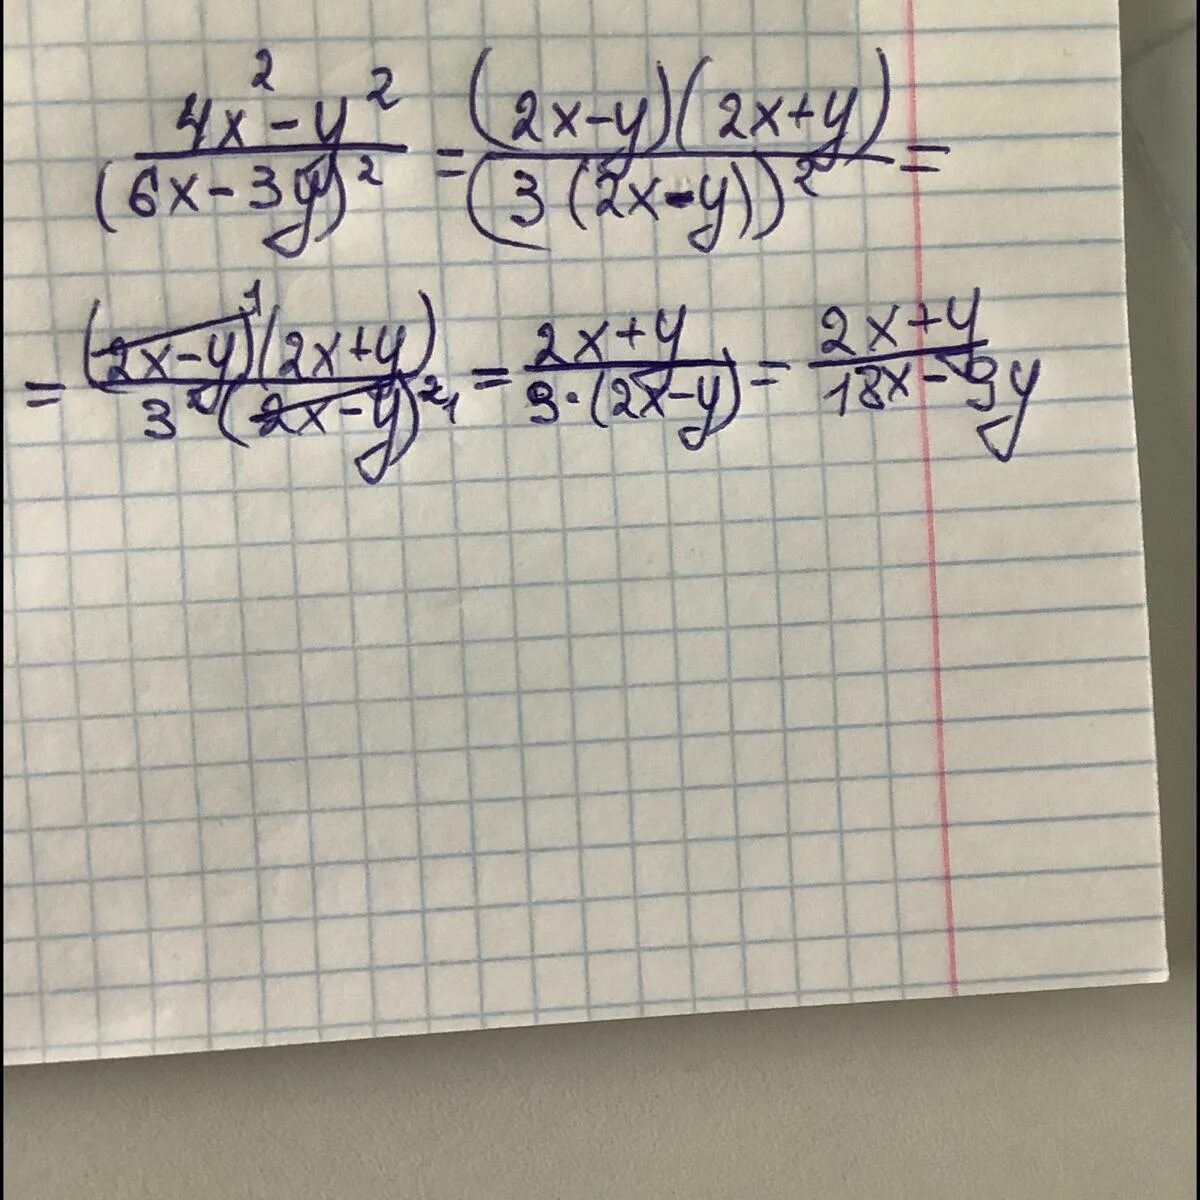 (4x² - y²)/(6x - 3y)² = ((2x-y)(2x+y))/(3(2x-y))² =
= ((2x-y)¹(2x+y))/(3²(2x-y)²₁) = (2x+y)/(9·(2x-y)) = (2x+y)/(18x-9y)